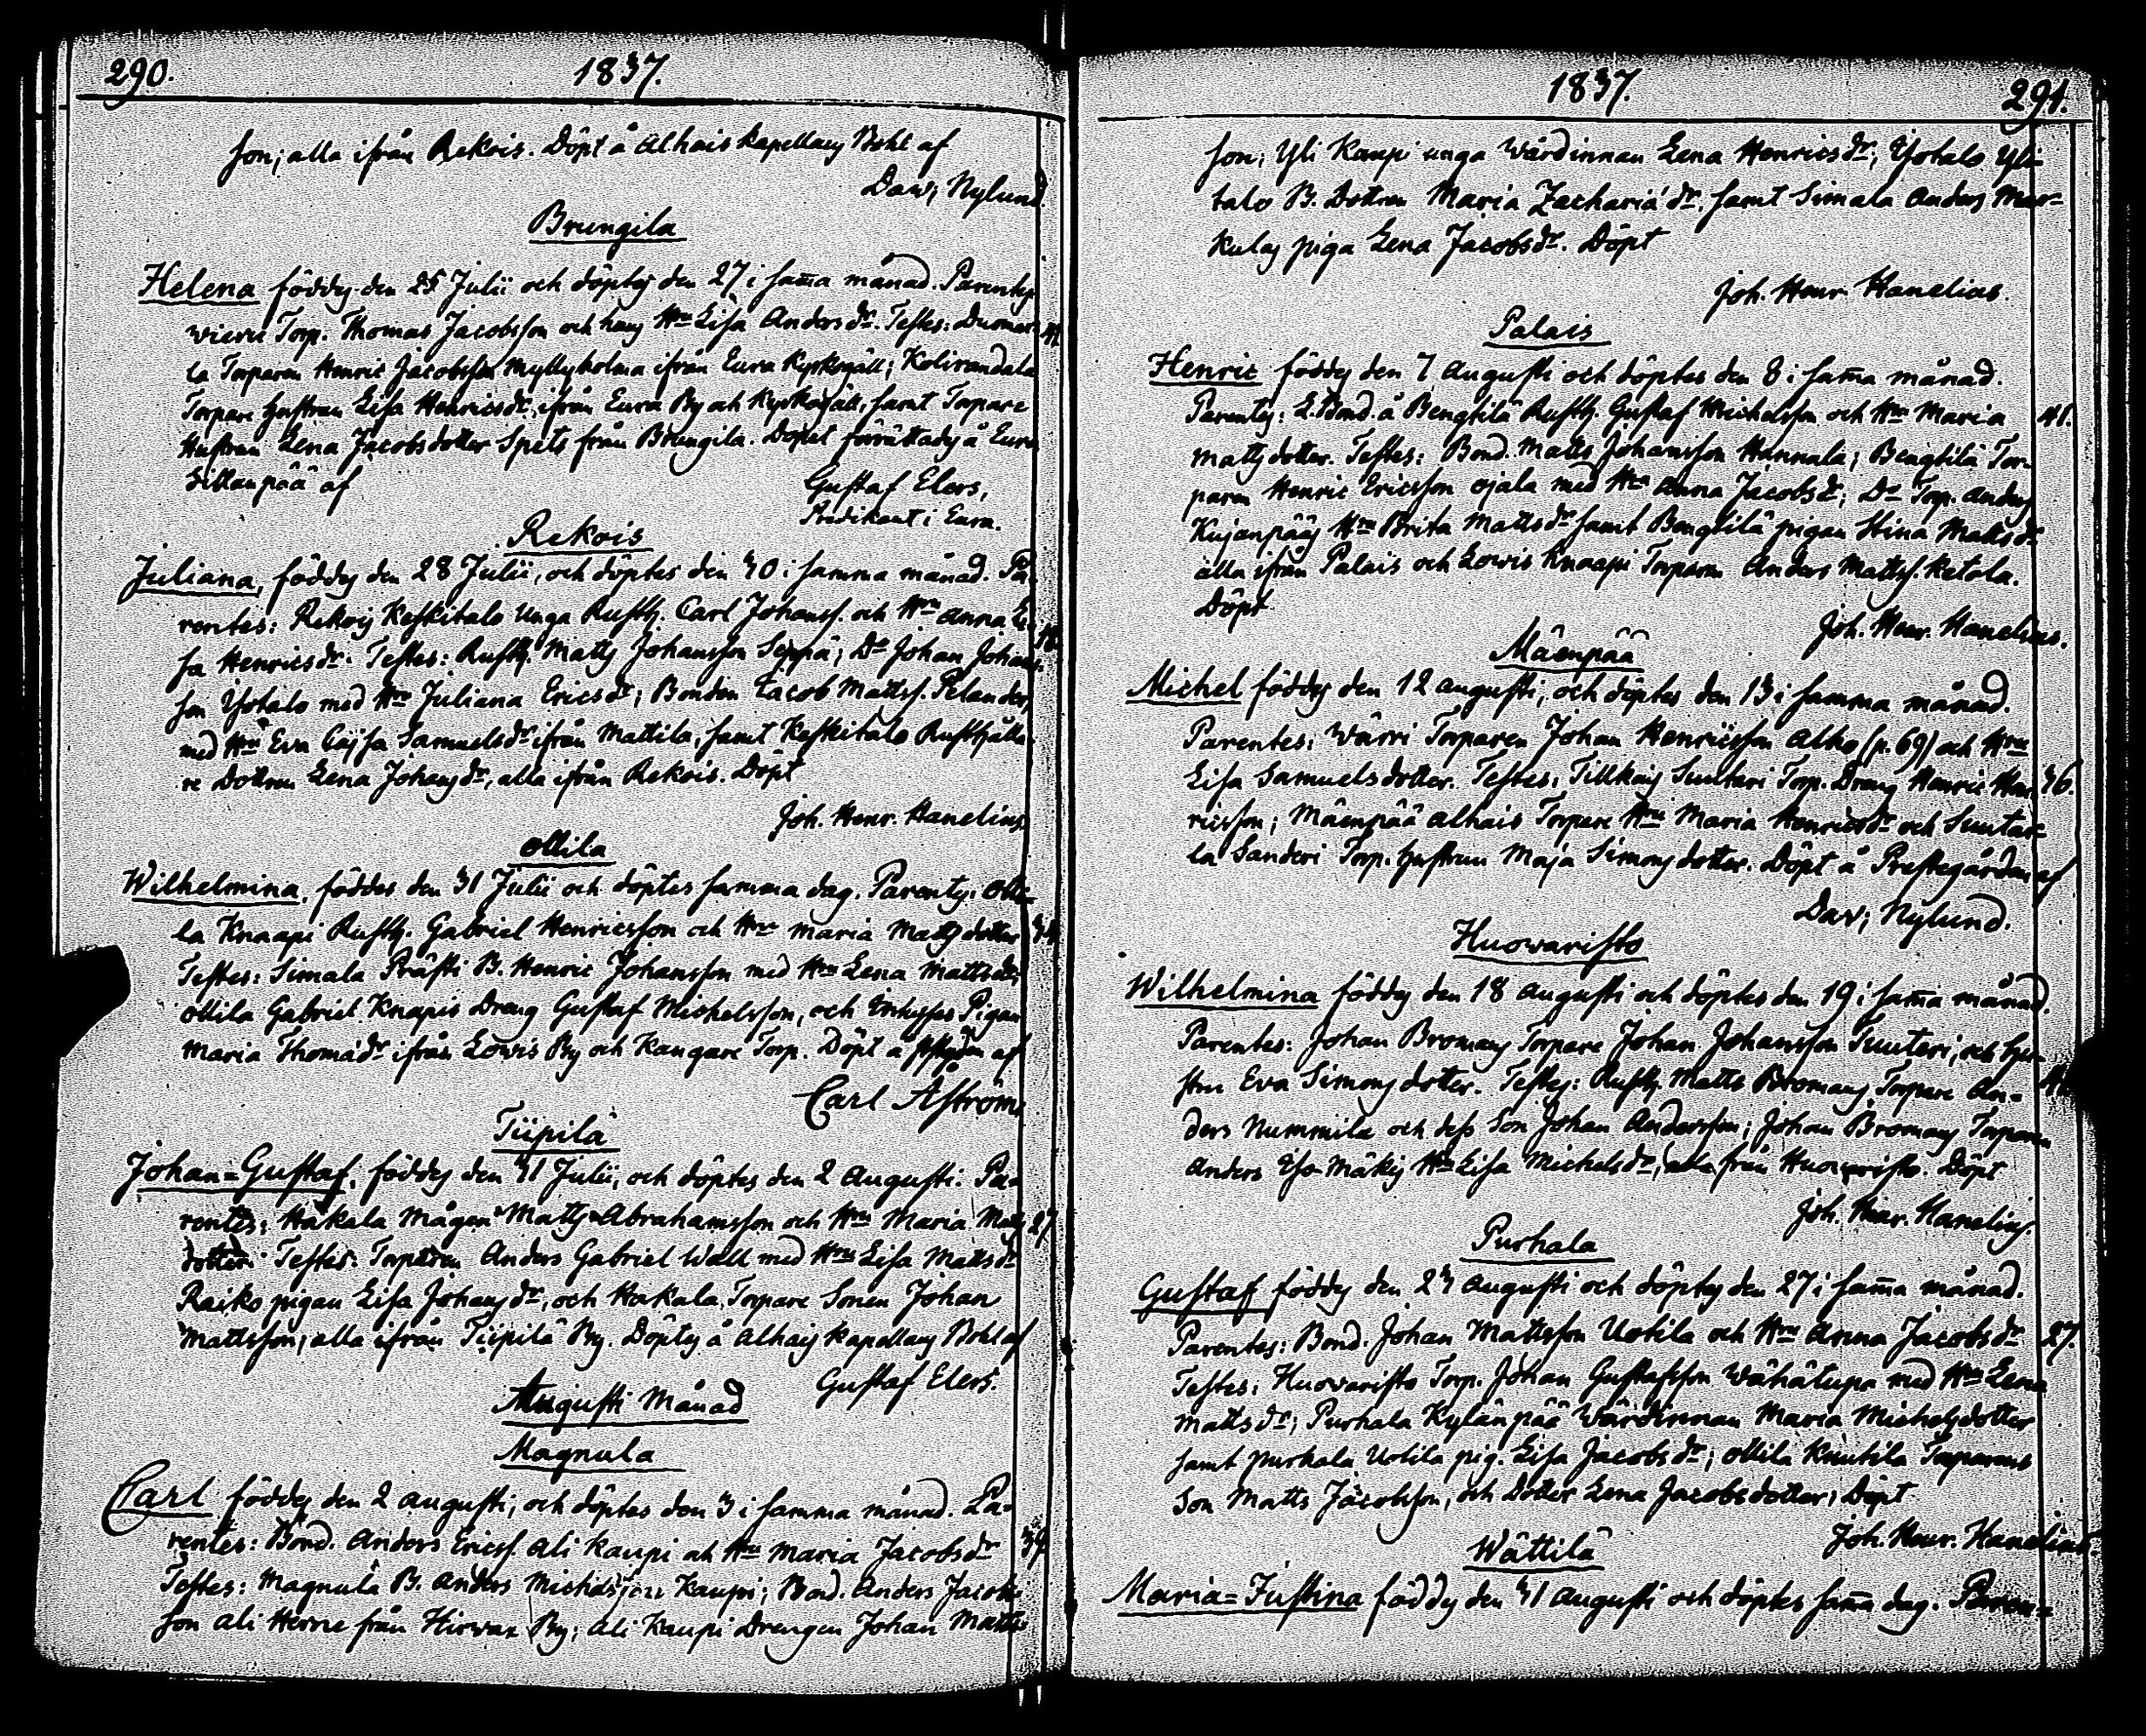 290. 1837.
son; alla ifrån Rekois. Döpt å Alhais kapellans Bohl af
Dav; Nylund.
Brungila
Helena föddes den 25 Julii och döptes den 27 i sam̄a månad. Parentes:
Torp. Thomas Jacobsson och hans Hru Lisa Andersdr. Testes:
la Torparen Henric Jacobsson Myllyholma ifrån Eura Kyrkogäll; Kolirandala
Torpare hustrun Lisa Henricsdr. ifrån Eura By och Kyrkogäll, samt Torpare
Hustrun Lena Jacobsdotter Spets från Brungila. Döpet förrättades å Eura
Sillanpää af
Gustaf Elers,
Predikant i Eura.
Rekois
Juliana, föddes den 28 Julii, och döptes den 30 i samma månad. Pa-
rentes: Rekois Keskitalo Unga Rusth. Carl Johanss. och Hru Anna Li-
sa Henricsdr. Testes: Rusth. Matts Johansson Seppä; Do Johan Johans-
son Isotalo med Hru Juliana Ericsdr; Bonden Jacob Mattss. Pelander,
med Hru Eva Cajsa Samuelsdr ifrån Mattila, samt Keskitalo Rusthålla-
re Dottren Lena Johansdr, alla ifrån Rekois. Döpt
Joh. Henr. Hanelius.
Ollila
Wilhelmina, föddes den 31 Julii och döptes samma dag. Parentes: Olli-
la Knaapi Rusth. Gabriel Henricsson och Hru Maria Mattsdotter 34.
Testes: Simala Prästi B. Henric Johansson med Hru Lena Mattsdr;
Ollila Gabriel Knapis Dreng Gustaf Michelsson, och Inhyses Pigan
Maria Thomædr ifrån Lowis By och Kangare Torp. Döpt å af
Carl Åström.
Tiipilä
Johan=Gustaf, föddes den 31 Julii, och döptes den 2 Augusti. Pa-
rentes: Hakala Mågen Matts Abrahamsson och Hru Maria Matts 27.
dotter. Testes: Torparen Anders Gabriel Wall med Hru Lisa Mattsdr
Raiko pigan Lisa Johansdr, och Hakala Torpare Sonen Johan
Mattsson, alla ifrån Tiipilä By. Döptes å Alhais kapellans Bohl af
Gustaf Elers.
Augusti Månad
Magnula
Carl föddes den 2 Augusti, och döptes den 3 i samma månad. Pa-
rentes: Bond. Anders Ericss. Ali Kaupi och Hru Maria Jacobsdr 39.
Testes: Magnula B. Anders Michelsson Kaupi; Bond. Anders Jacobs-
son Ali Herne från By; Ali Kaupi Drengen Johan Matts-
1837. 291.
son; Yli Kaupi unga Wärdinnan Lena Henricsdr; Isotalo Yli-
talo B. Dottren Maria Zachariædr. samt Simala Anders Mar-
kulas piga Lena Jacobsdr. Döpt
Joh. Henr. Hanelius.
Palais
Henric föddes den 7 Augusti och döptes den 8 i sam̄a månad.
Parentes: L. Bond. å Bengtilä Rusth. Gustaf Michelsson och Hru Maria 41.
Mattsdotter. Testes: Bond. Matts Johansson Hannula; Bengtilä Tor-
paren Henric Ericsson Ojala med Hru Anna Jacobsdr; Do Torp. Anders
Kujanpääs Hru Brita Mattsdr samt Bengtilä pigan Stina Mattsdr
alla ifrån Palais och Lowis Knaapi Torparen Anders Mattss. Ketola.
Döpt
Joh. Henr. Hanelius.
Mäenpää
Michel föddes den 12 Augusti, och döptes den 13 i samma månad.
Parentes: Wärri Torparen Johan Henricsson Alho (p. 69) och Hru
Lisa Samuelsdotter. Testes: Tillkais Suutari Torp. Dreng Henric Hen- 36.
ricsson; Mäenpää Alhais Torpare Hru Maria Henricsdr och Suuta-
la Sanderi Torp. hustrun Maja Simonsdotter. Döpt å Prestegården af
Dav; Nylund.
Huowaristo
Wilhelmina föddes den 18 Augusti och döptes den 19 i sam̄a månad.
Parentes: Johan Bromans Torpare Johan Johansson Suutari, och hu-
stru Eva Simonsdotter. Testes: Rusth. Matts Bromans Torpare An-
ders Nummila och dess Son Johan Andersson; Johan Bromans Torparen
Anders Iso-Mäkis Hru Lisa Michelsdr, alla från Huowaristo. Döpt
Joh. Henr. Hanelius.
Purhala
Gustaf föddes den 23 Augusti och döptes den 27 i sam̄a månad.
Parentes: Bond. Johan Mattsson Uotila och Hru Anna Jacobsdr 27.
Testes: Huowaristo Torp. Johan Gustafsson Wähätupa med Hru Lena
Mattsdr; Purhala Kylänpää Wärdinnan Maria Michelsdotter
samt Purhala Uotila pig. Lisa Jacobsdr; Ollila Knutila Torparens
Son Matts Jacobsson, och Dotter Lena Jacobsdotter; Döpt
Joh. Henr. Hanelius.
Wättilä
Maria=Justina föddes den 31 Augusti och döptes sam̄a dag. Paren=